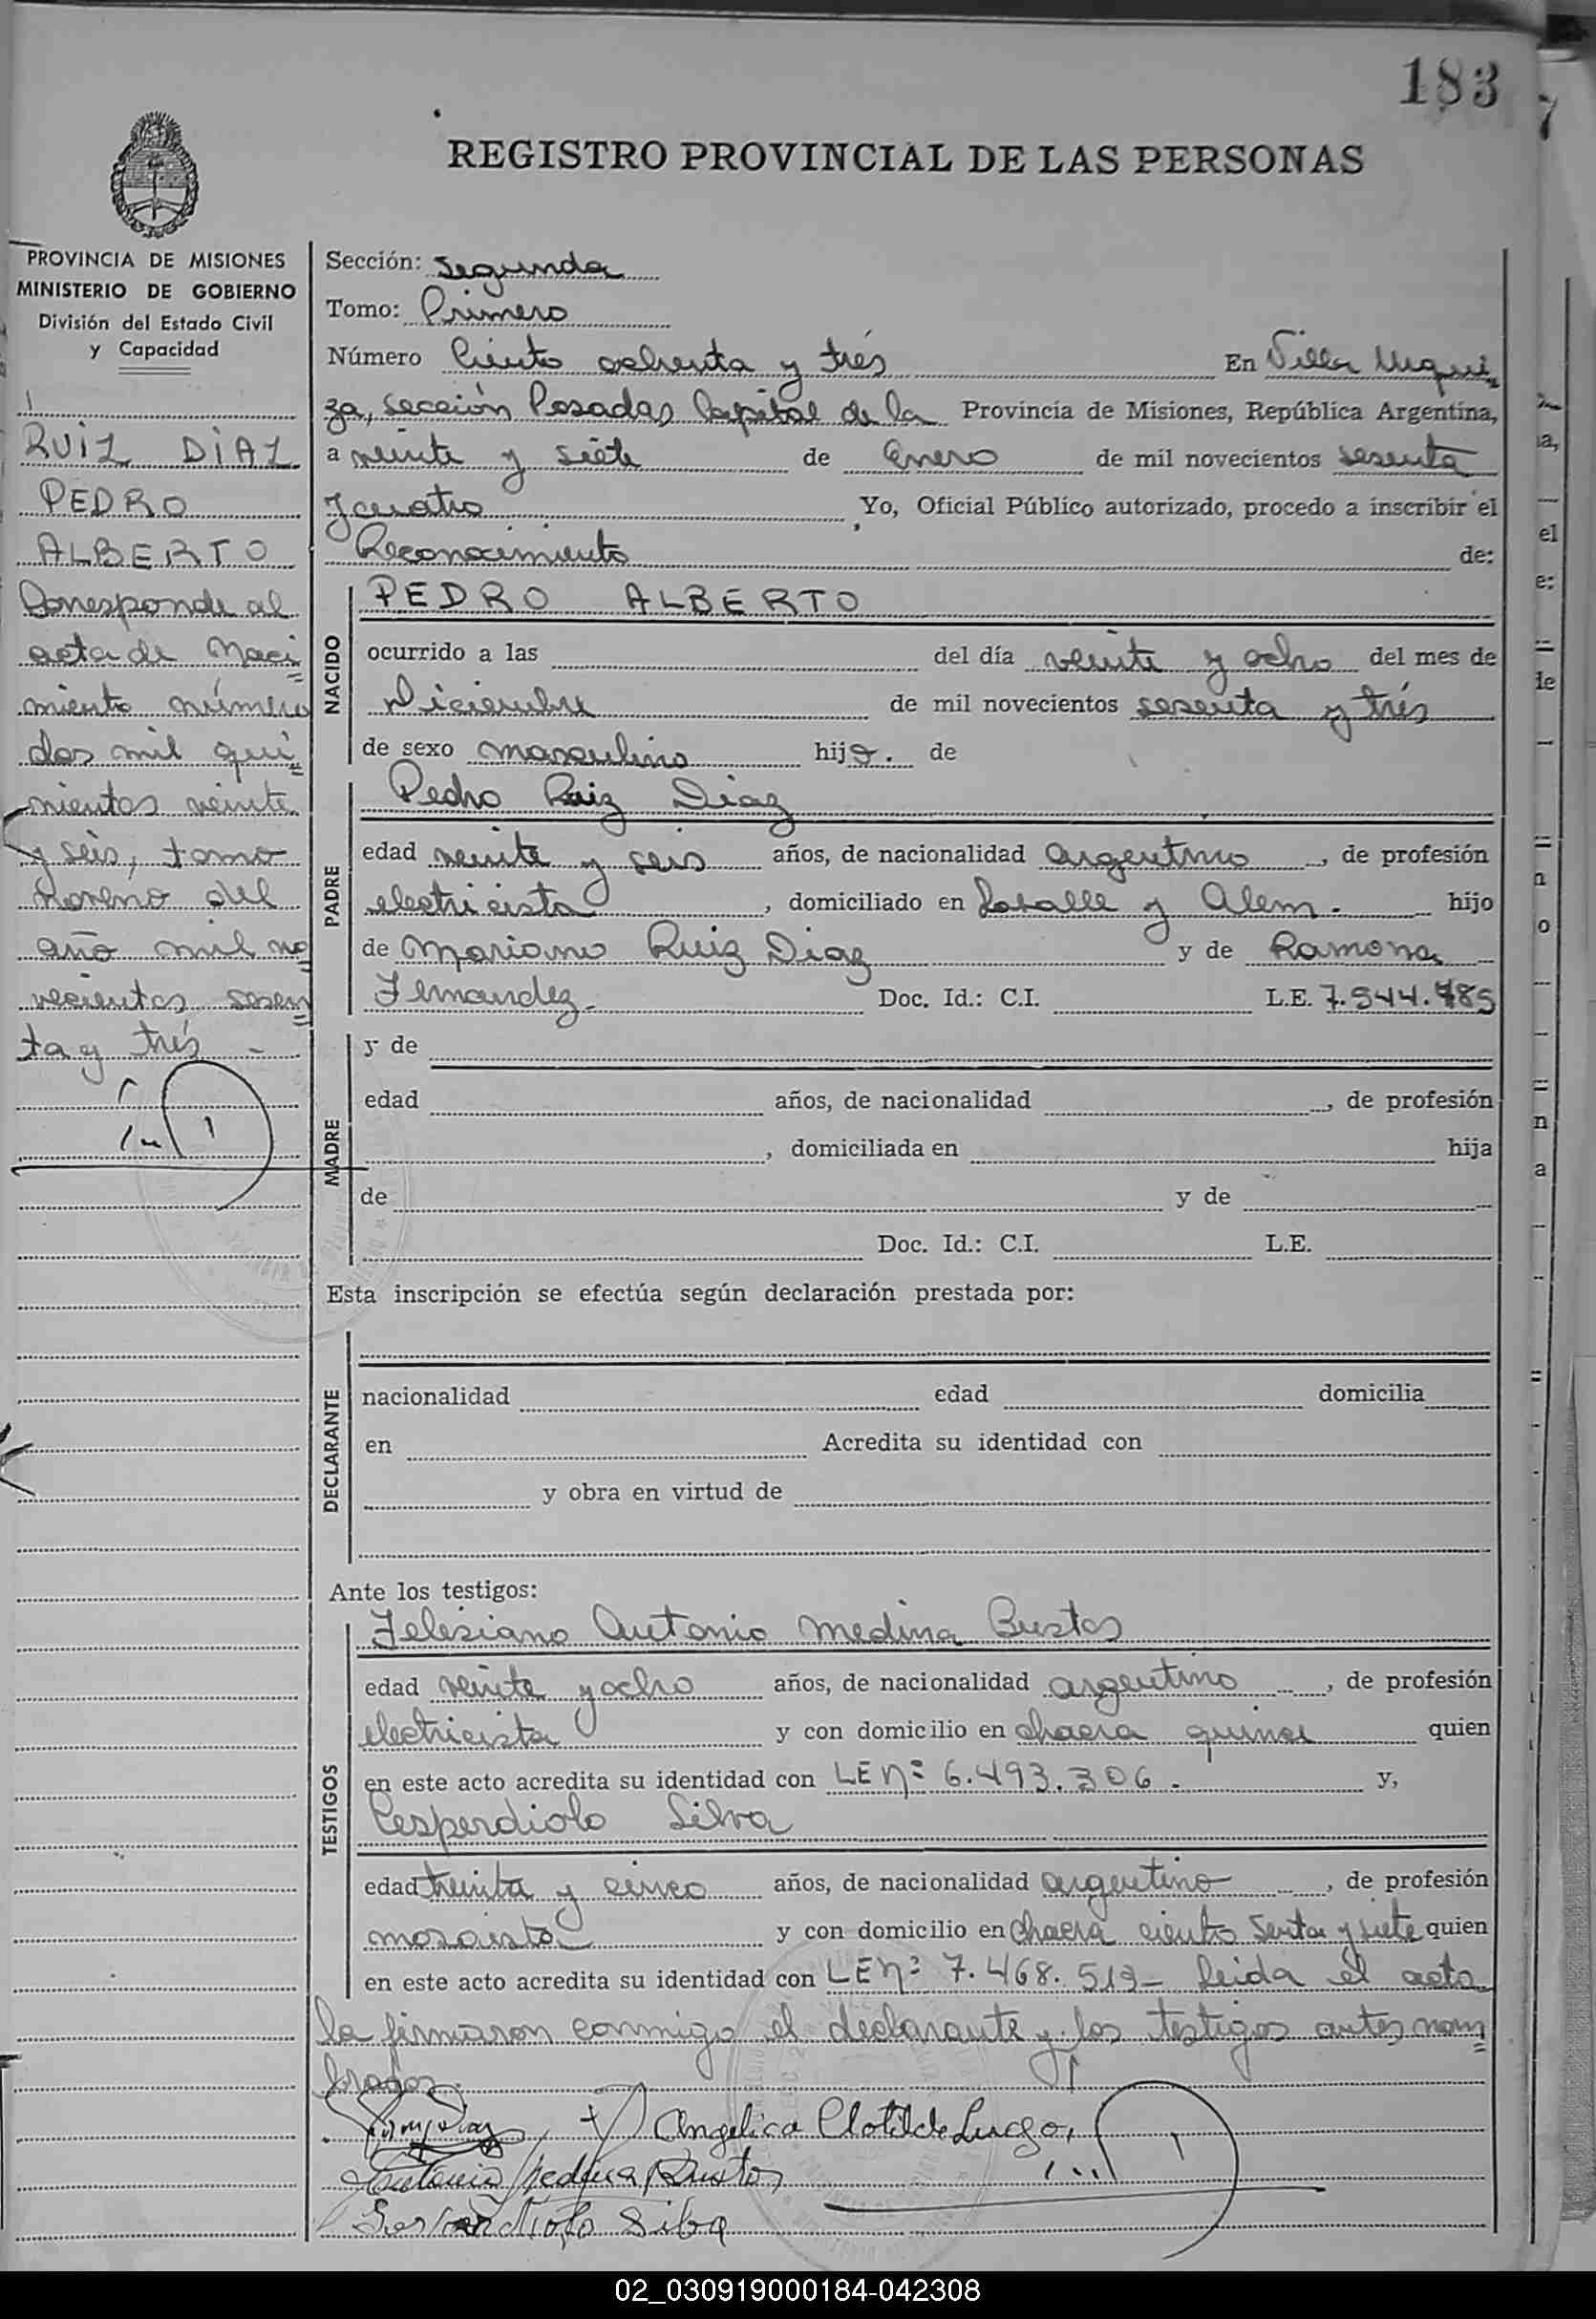 183
REGISTRO PROVINCIAL DE LAS PERSONAS
PROVINCIA DE MISIONES
MINISTERIO DE GOBIERNO
División del Estado Civil
y Capacidad
RUIZ DIAZ
PEDRO
ALBERTO
Corresponde al
acta de Naci
miento número
dos mil qui
nientos veinte
y seis, tomo
noveno del
año mil no
vecientos sesen
ta y trés -
Sección: Segunda
Tomo: Primero
Número Ciento ochenta y trés En Villa Urqui
za, sección Posadas Capital de la Provincia de Misiones, República Argentina,
a veinte y siete de Enero de mil novecientos sesenta
y cuatro Yo, Oficial Público autorizado, procedo a inscribir el
Reconocimiento de:
NACIDO
PEDRO ALBERTO
ocurrido a las del día veinte y ocho del mes de
Diciembre de mil novecientos sesenta y trés
de sexo masculino hijo. de
PADRE
Pedro Ruiz Diaz
edad veinte y seis años, de nacionalidad argentino, de profesión
electricista, domiciliado en Lavalle y Alem. hijo
de Mariano Ruiz Diaz y de Ramona
Fernandez- Doc. Id.: C.I. L.E. 7.544.785
MADRE
y de
edad años, de nacionalidad , de profesión
, domiciliada en hija
de y de
Doc. Id.: C.I. L.E.
Esta inscripción se efectúa según declaración prestada por:
DECLARANTE
nacionalidad edad domicilia
en Acredita su identidad con
y obra en virtud de
Ante los testigos:
TESTIGOS
Felisiano Antonio Medina Bustos
edad veinte y ocho años, de nacionalidad argentino, de profesión
electricista y con domicilio en chacra quince quien
en este acto acredita su identidad con LENº 6.493.306. y,
Silva
edad treinta y cinco años, de nacionalidad argentino, de profesión
mosaista y con domicilio en chacra ciento y siete quien
en este acto acredita su identidad con LENº 7.468.519- Leida el acta
la firmaron conmigo el declarante y los testigos antes nom
brados.
Angelica Clotilde Lugo,
Antonio Medina Bustos
Silva
02_030919000184-042308